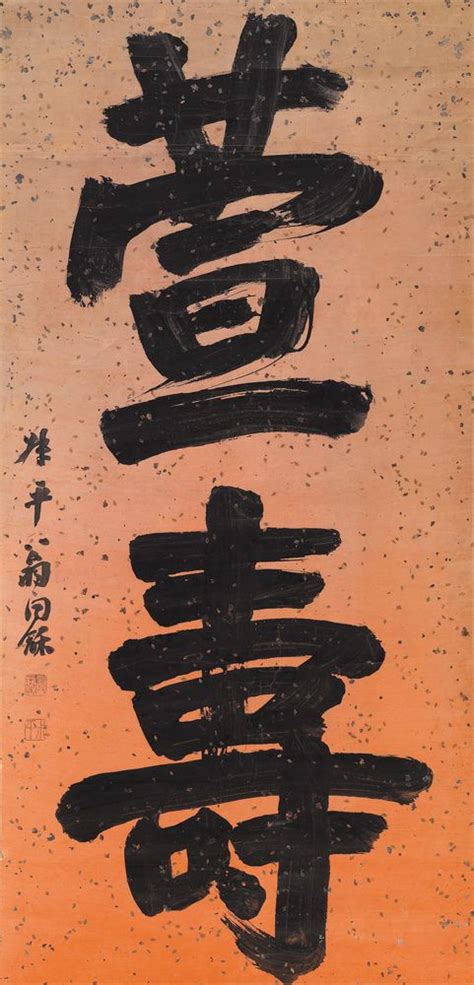 萱壽
叔平翁同龢